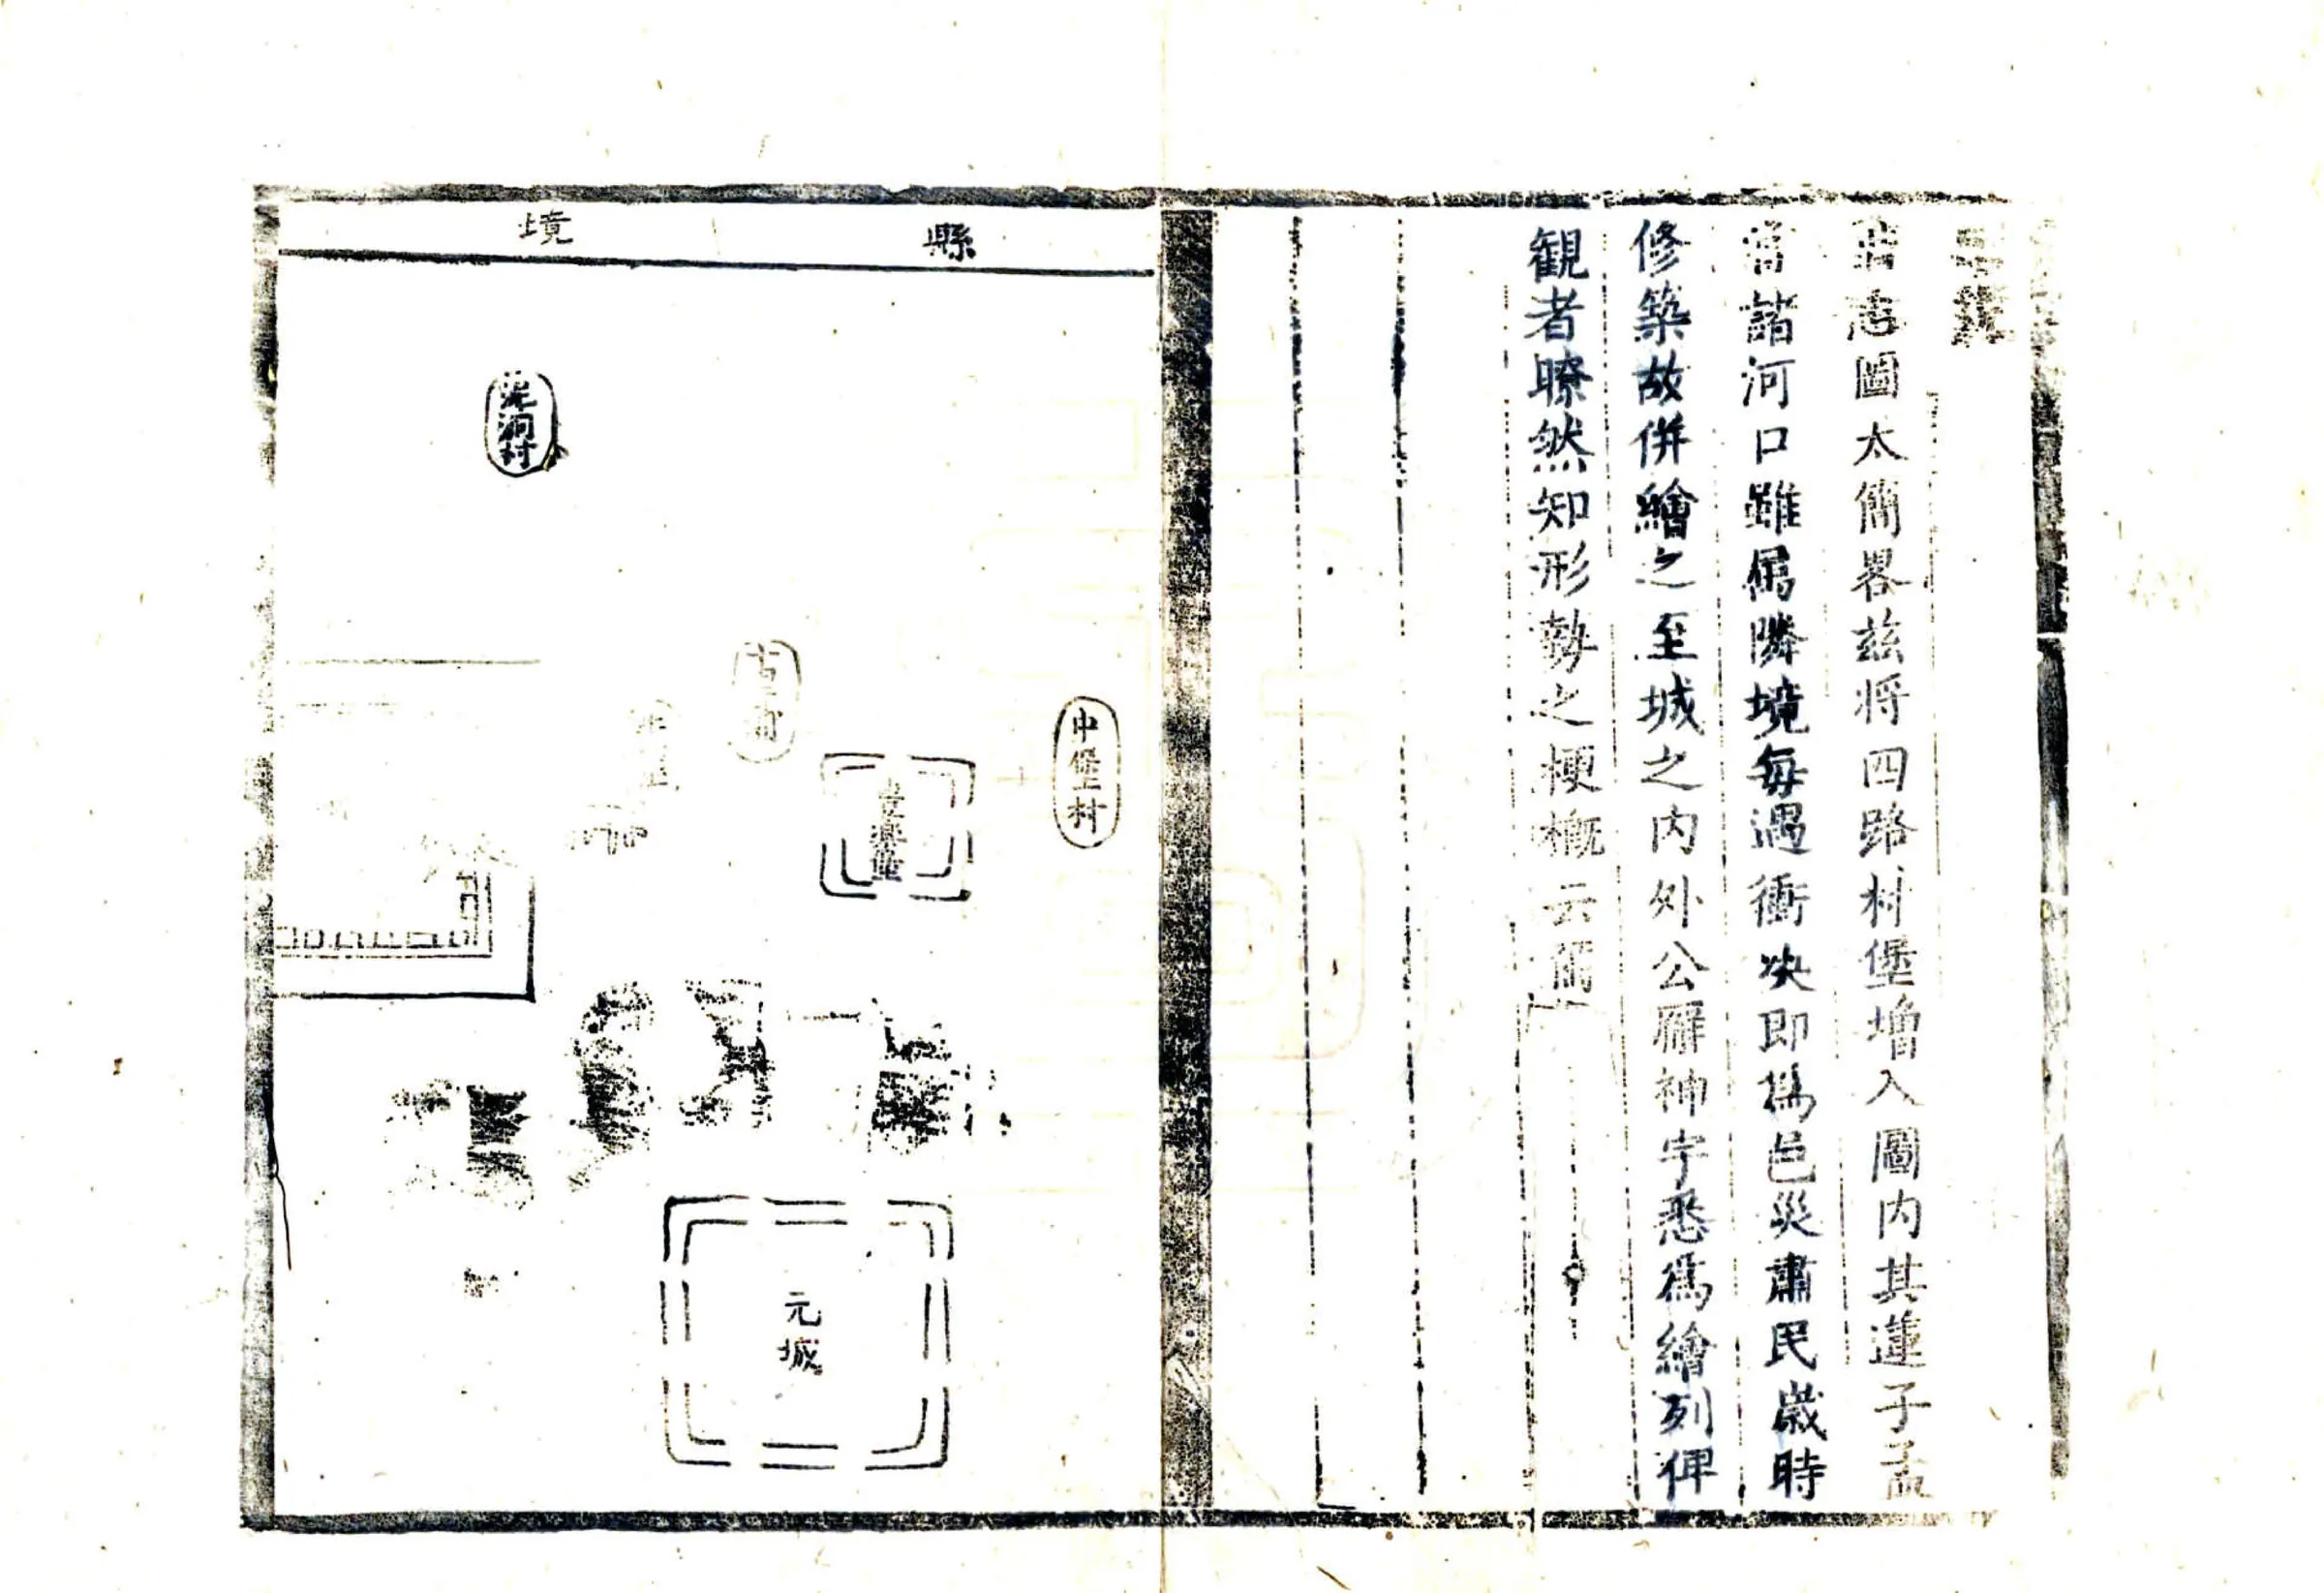 志圖太簡畧茲將四路村堡增入圖内其蓮子孟
當諸河口雖屬隣境每遇衝决即爲邑災肅民歲時
修築故併繪之至城之内外公廨神宇悉爲繪列俾
観者瞭然知形勢之梗概云爾
縣境
中堡村
泥洞村
元城